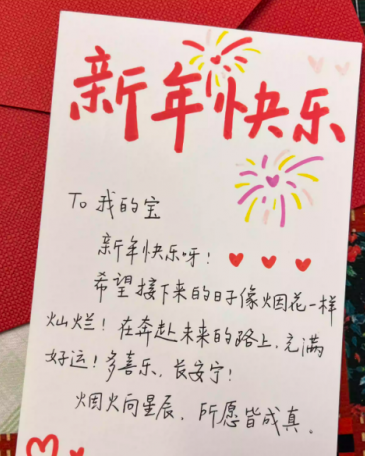 新年快乐
To 我的宝
新年快乐呀！
希望接下来的日子像烟花一样
灿烂！在奔赴未来的路上，充满
好运！多喜乐、长安宁！
烟火向星辰，所愿皆成真。